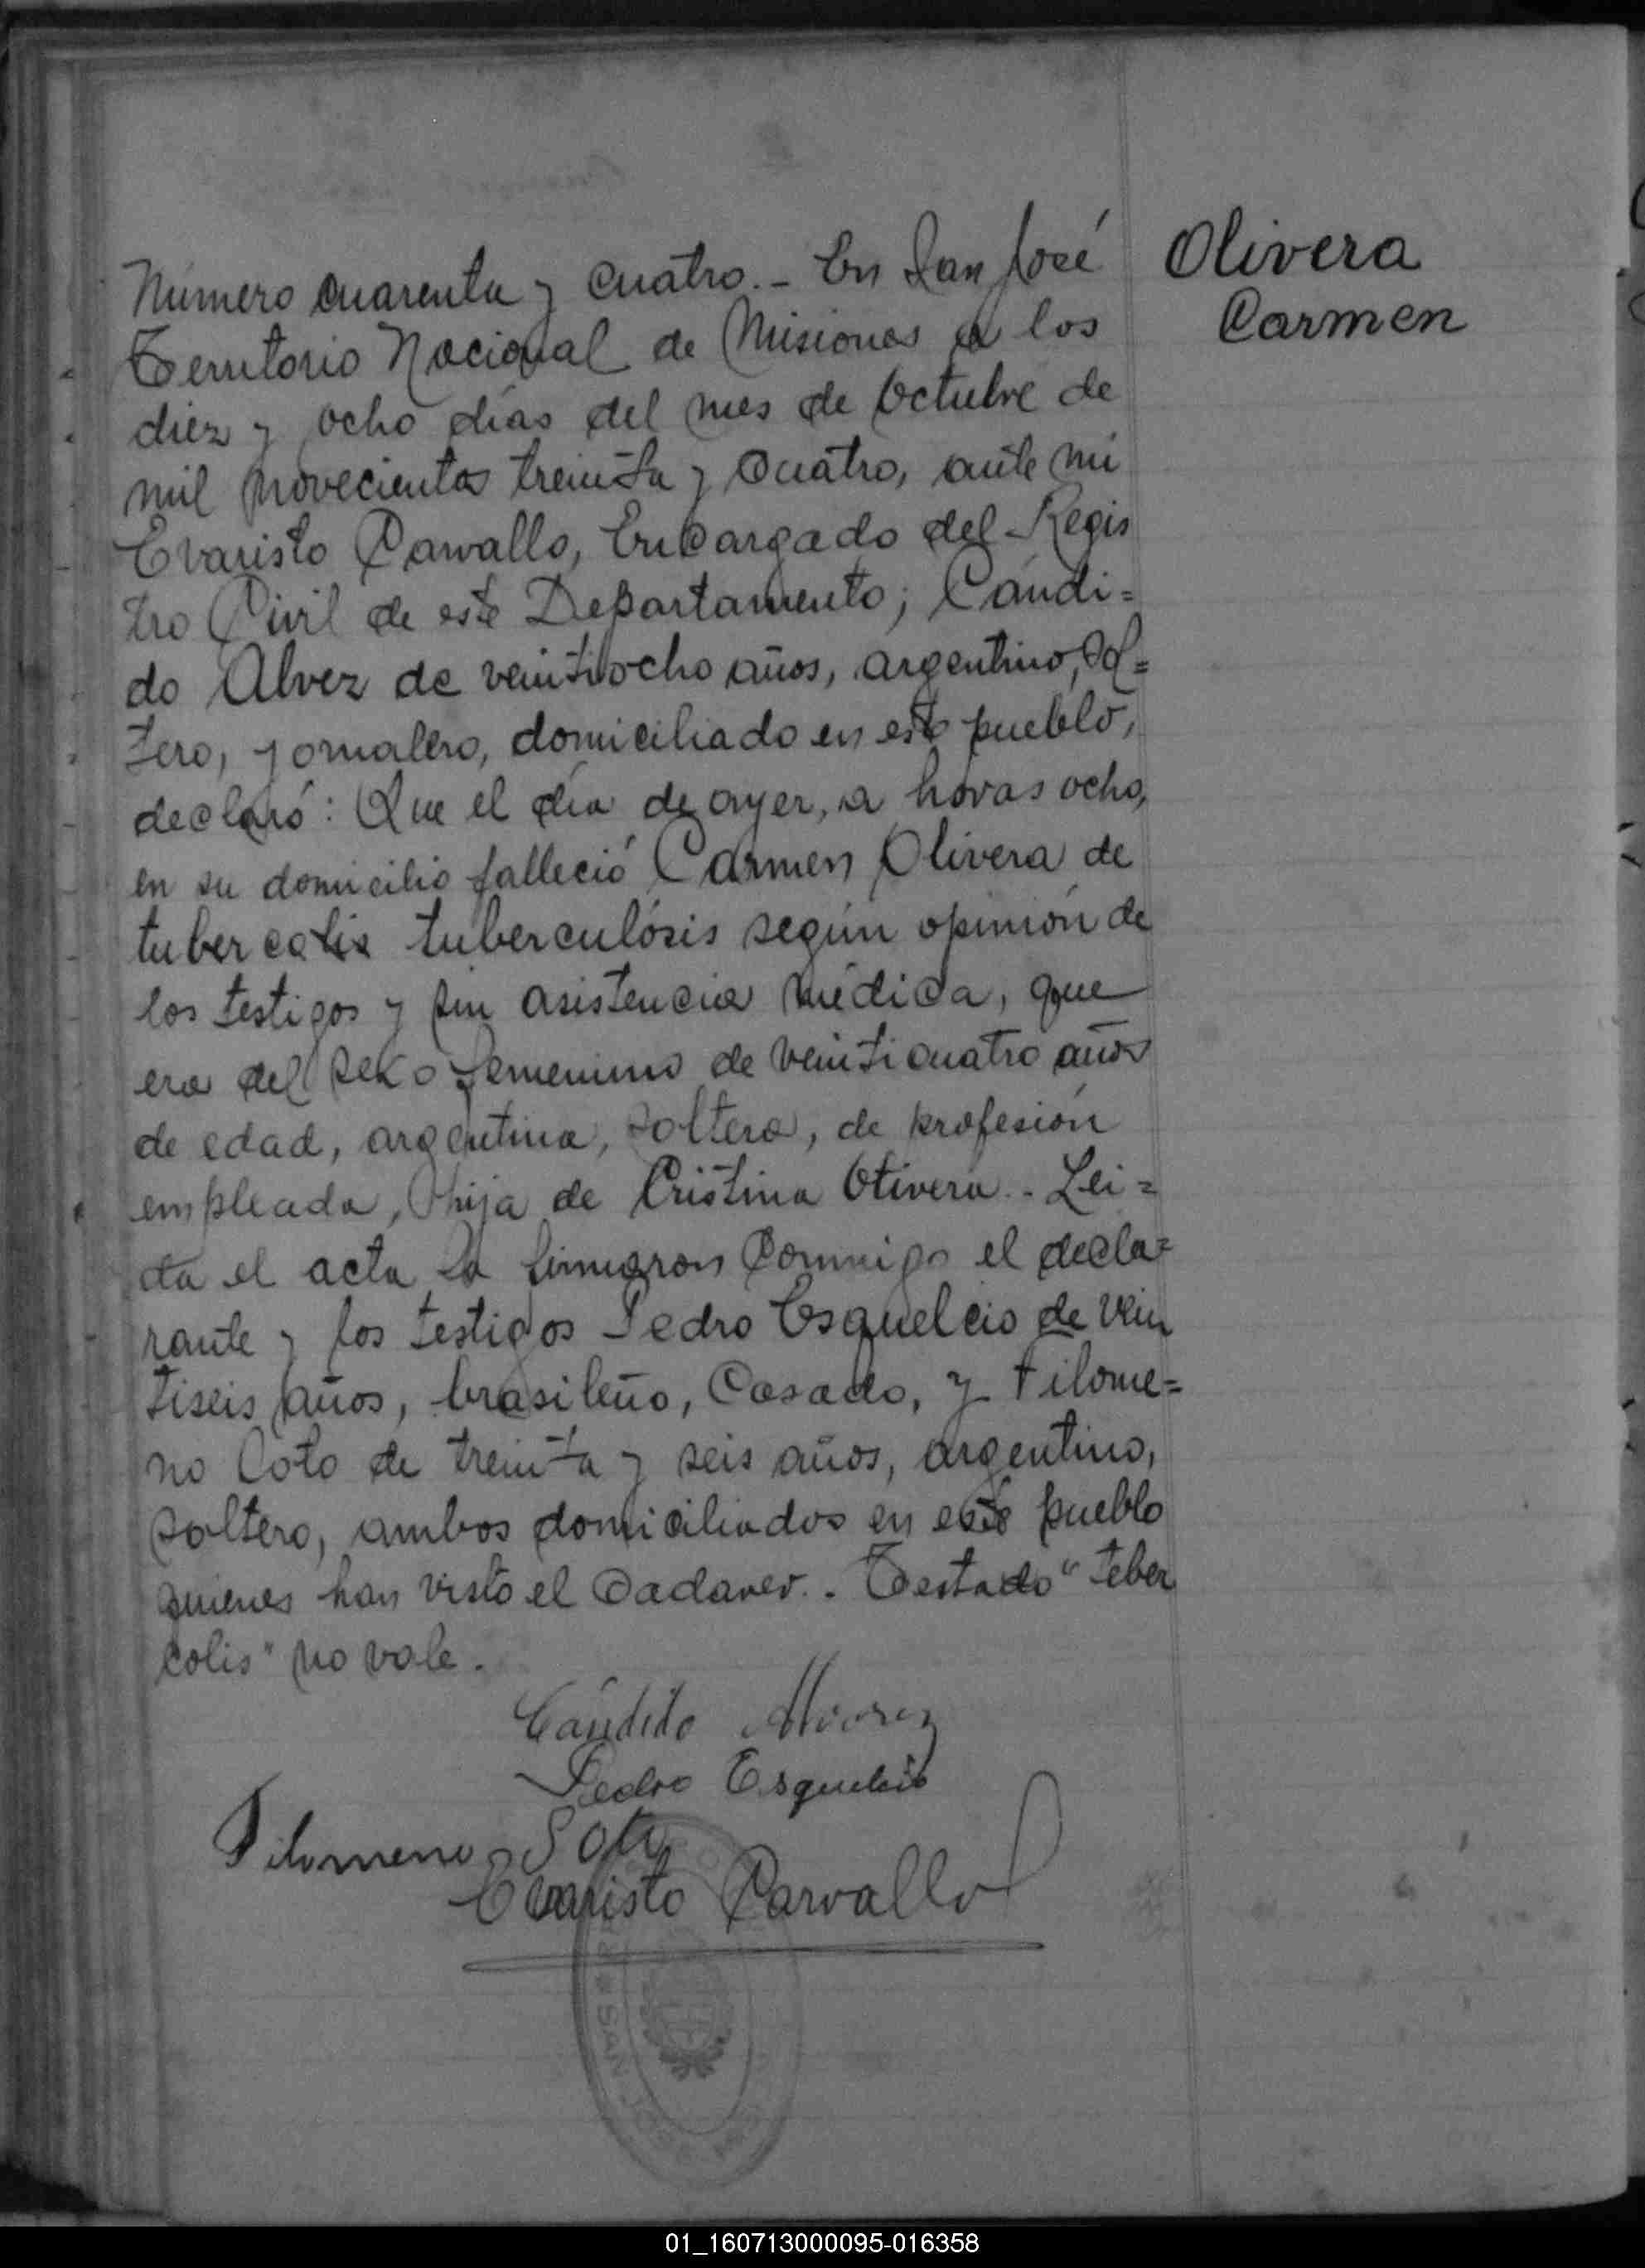 Olivera
Carmen
Número cuarenta y cuatro.- En San José
Territorio Nacional de Misiones a los
diez y ocho días del mes de Octubre de
mil novecientos treinta y cuatro, ante mi
Evaristo Carvallo, Encargado del Regis
tro Civil de este Departamento; Cándi=
do Alvez de veintiocho años, argentino, sol=
tero, jornalero, domiciliado en este pueblo,
declaró: Que el día de ayer, a horas ocho,
en su domicilio falleció Carmen Olivera de
tubercolis tuberculósis según opinión de
los testigos y sin asistencia médica, que
era del sexo femenino de veinticuatro años
de edad, argentina, soltera, de profesión
empleada, hija de Cristina Olivera.- Lei=
da el acta la firmaron conmigo el decla=
rante y los testigos Pedro Esquelcio de vein
tiseis años, brasileño, casado, y Filome=
no Soto de treinta y seis años, argentino,
soltero, ambos domiciliados en este pueblo
quienes han visto el cadaver.- Testado "teber
colis" no vale.
Cándido
Pedro Esquelcio
Filomeno Soto
Evaristo Carvallo
SAN JOSE
01_160713000095-016358